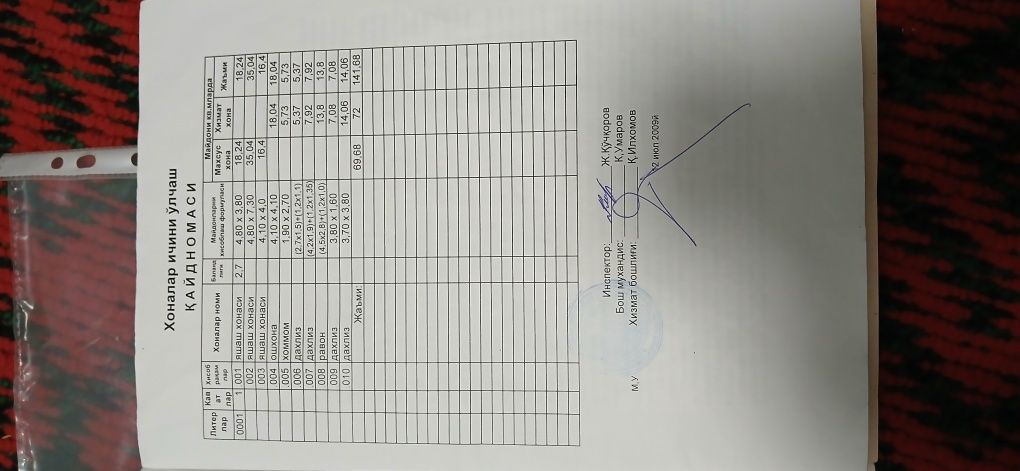 Хоналар ичини ўлчаш
ҚАЙДНОМАСИ
Литерлар Кават лар Хисоб ракамлар Хоналар номи Баландлиги Майдонларни хисоблаш формуласи Майдони кв.мларда
Махсус хона Хизмат хона Жаъми
0001 1 001 яшаш хонаси 2,7 4,80 х 3,80 18,24 18,24
002 яшаш хонаси 4,80 х 7,30 35,04 35,04
003 яшаш хонаси 4,10 х 4,0 16,4 16,4
004 ошхона 4,10 х 4,10 18,04 18,04
005 хоммом 1,90 х 2,70 5,73 5,73
006 дахлиз (2,7х1,5)+(1,2х1,1) 5,37 5,37
007 дахлиз (4,2х1,9)+(1,2х1,35) 7,92 7,92
008 равон (4,5х2,8)+(1,2х1,0) 13,8 13,8
009 дахлиз 3,80 х 1,60 7,08 7,08
010 дахлиз 3,70 х 3,80 14,06 14,06
Жаъми: 69,68 72 141,68
Инспектор: Ж.Кучкоров
Бош мухандис: К.Умаров
Хизмат бошлиғи: К.Илхомов
М.У 2 июл 2009й